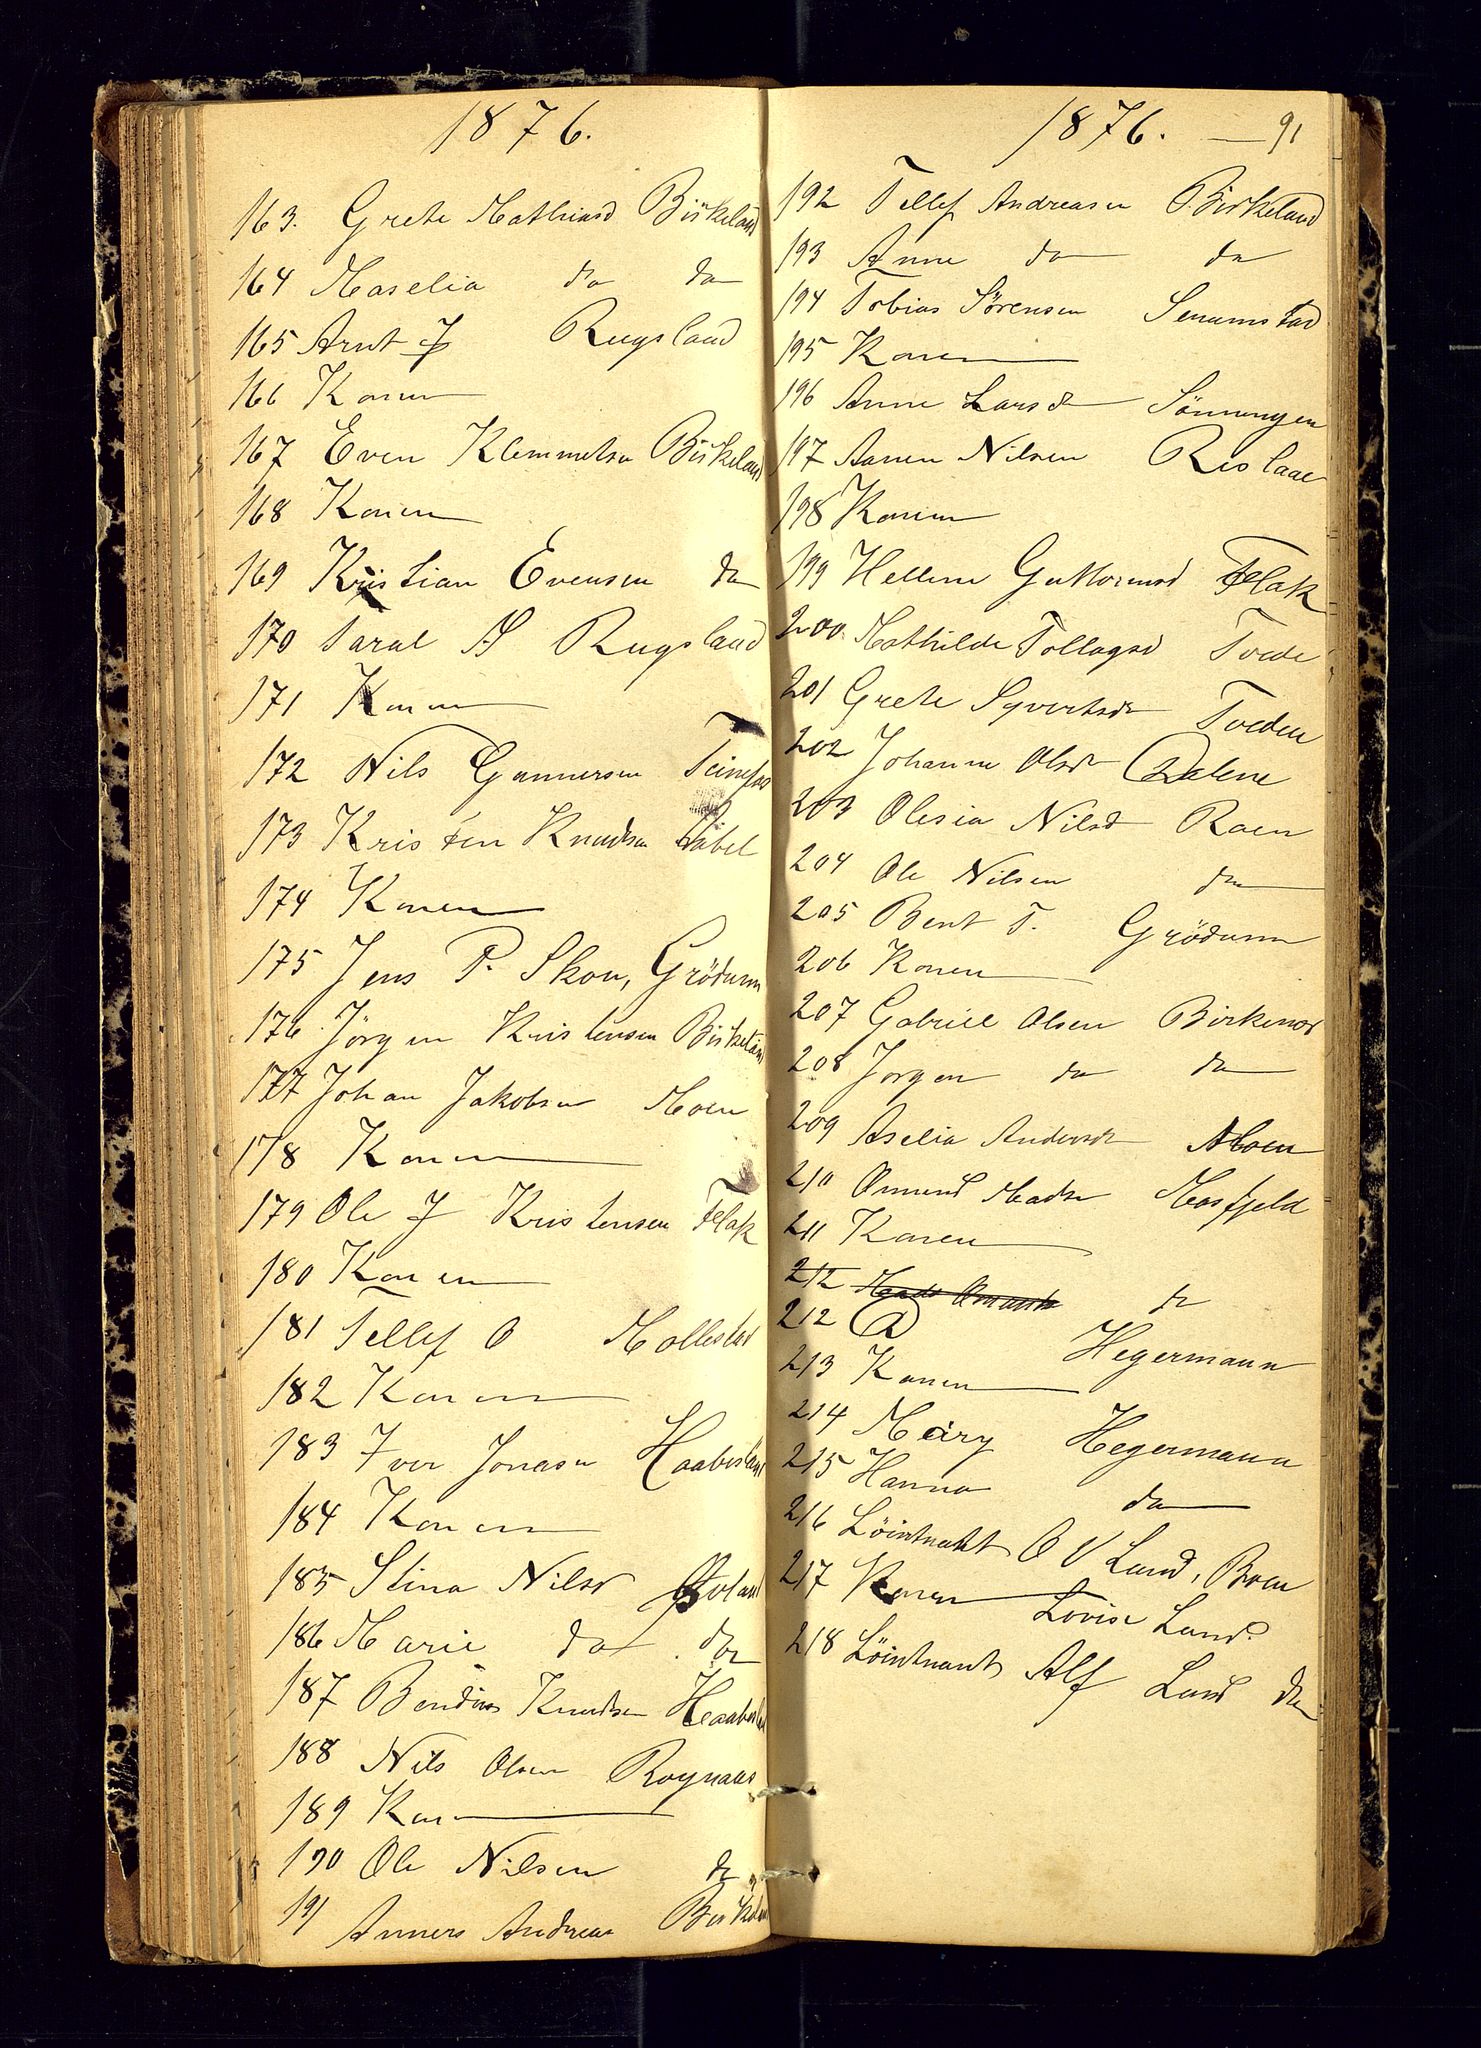 1876.
163. Grete Mathiasd Birkeland
164 Maselia do do
165 Arnt J Rugsland
166 Konen
167 Even Klemmetsen Birkeland
168 Konen
169 Kristian Evensen do
170 Taral A Rugsland
171 Konen
172 Nils Gunnersen
173 Kristen Knudsen Håbel
174 Konen
175 Jens P. Skou, Grödum
176 Jörgen Kristensen Birkeland
177 Johan Jakobsen Moen
178 Konen
179 Ole J Kristensen Flak
180 Konen
181 Tellef O Mollestad
182 Konen
183 Iver Jonasen Haabesland
184 Konen
185 Stina Nilsd
186 Marie do do
187 Bendix Knudsen Haabesland
188 Nils Olsen Roynaas
189 Kone
190 Ole Nilsen do
191 Anners Andreas Birkeland
1876. — 91
192 Tellef Andreasen Birkeland
193 Anne do do
194 Tobias Sörensen Senumstad
195 Konen
196 Anne Larsd Sönningen
197 Aanen Nilsen Rislaae
198 Konen
199 Hellene Guttormsd Flak
200. Mathilde Tollagsd Tvede
201 Grete Syvertsd Tveden
202 Johanne Olsd Dalene
203 Olesia Nilsd Roen
204 Ole Nilsen do
205 Bent T. Grödum
206 Konen
207 Gabriel Olsen Birkenes
208 Jorgen do do
209 Aselia Andersd Moen
210 Omund Madsen Mosfjeld
211 Konen
212 Mads Omunds do
212 A Hegermann
213 Konen
214 Mary Hegermann
215 Hanna do
216 Löintnant O V Lund, Boen
217 Konen Lovise Lund.
218 Löintnant Alf Lund do